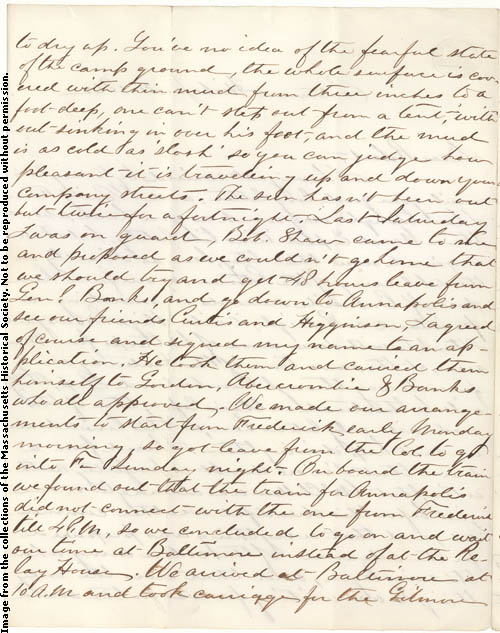 to dry up. You've no idea of the fearful state
of the camp ground, the whole surface is cov
ered with thin mud from three inches to a
foot deep, one can't step out from a tent, with
out sinking in over his foot, and the mud
is as cold as 'slosh' so you can judge how
pleasant it is traveling up and down your
company streets. The sun hasn't been out
but twice for a fortnight. Last Saturday
I was on guard, Bob. Shaw came to me
and proposed as we couldn't go home that
we should try and get 48 hours leave from
Gen'l Banks, and go down to Annapolis and
see our friends Curtis and Higginson, I agreed
of course and signed my name to an ap-
plication. He took them and carried them
himself to Gordon, Abercrombie & Banks
who all approved. We made our arrange-
ments to start from Frederick early Monday
morning, so got leave from the Col. to go
into F— Sunday night. On board the train
we found out that the train for Annapolis
did not connect with the one from Frederick
till 4 P.M, so we concluded to go on and wait
our time at Baltimore instead of at the Re-
lay House. We arrived at Baltimore at
10 A.M and took carriage for the Gilmore
Image from the collections of the Massachusetts Historical Society. Not to be reproduced without permission.